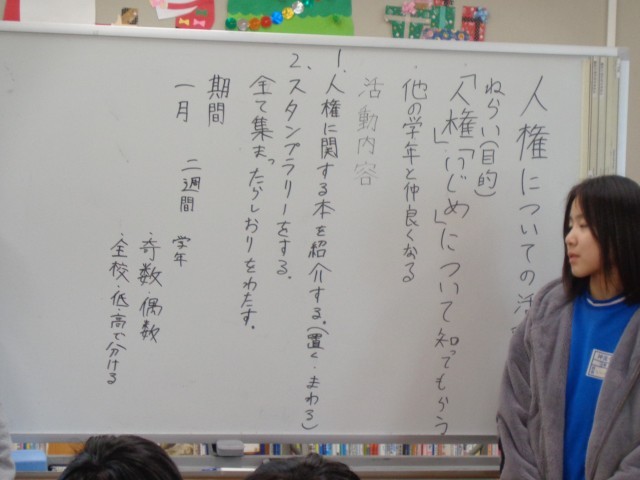 人権についての活
ねらい(目的)
「人権」「いじめ」について知ってもらう
・他の学年と仲良くなる
活動内容
1、人権に関する本を紹介する。(置く・まわる)
2、スタンプラリーをする。
全て集まったらしおりをわたす。
期間
一月 二週間 学年
・奇数・偶数
・全校・低・高で分ける